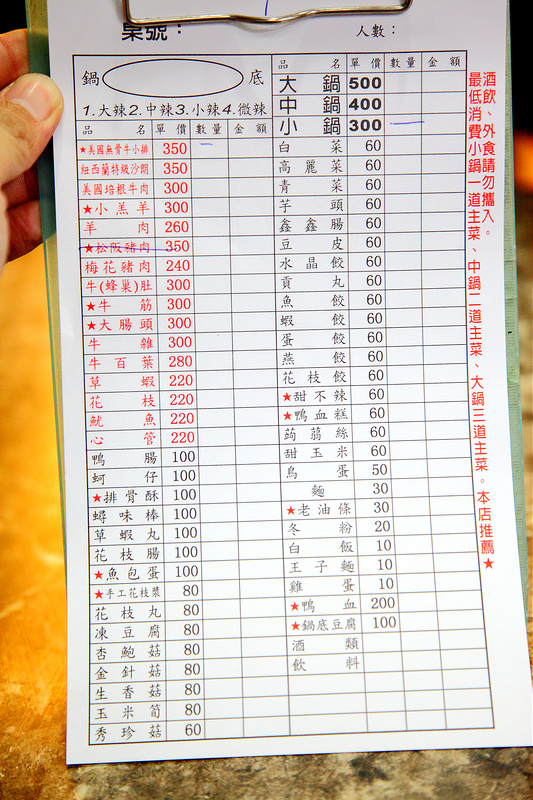 桌號： 人數：
鍋 底
1.大辣2.中辣3.小辣4.微辣
品名 單價 數量 金額
★美國無骨牛小排 350
紐西蘭特級沙朗 350
美國培根牛肉 300
★小羔羊 300
羊肉 260
★松阪豬肉 350
梅花豬肉 240
牛(蜂巢)肚 300
★牛筋 300
★大腸頭 300
牛雜 300
牛百葉 280
草蝦 220
花枝 220
魷魚 220
心管 220
鴨腸 100
蚵仔 100
★排骨酥 100
蟳味棒 100
草蝦丸 100
花枝腸 100
★魚包蛋 100
★手工花枝漿 80
花枝丸 80
凍豆腐 80
杏鮑菇 80
金針菇 80
生香菇 80
玉米筍 80
秀珍菇 60
品名 單價 數量 金額
大鍋 500
中鍋 400
小鍋 300
白菜 60
高麗菜 60
青菜 60
芋頭 60
鑫鑫腸 60
豆皮 60
水晶餃 60
貢丸 60
魚餃 60
蝦餃 60
蛋餃 60
燕餃 60
花枝餃 60
★甜不辣 60
★鴨血糕 60
蒟蒻絲 60
甜玉米 60
鳥蛋 50
麵 30
★老油條 30
冬粉 20
白飯 10
王子麵 10
雞蛋 10
★鴨血 200
★鍋底豆腐 100
酒類
飲料
酒飲、外食請勿攜入。
最低消費小鍋一道主菜、中鍋二道主菜、大鍋三道主菜。本店推薦★